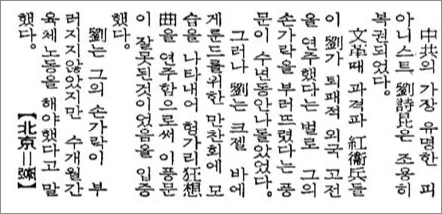 中共의 가장 유명한 피
아니스트 劉詩昆은 조용히
복권되었다.
文革때 과격파 紅衛兵들
이 劉가 퇴폐적 외국 고전
을 연주했다는 벌로 그의
손가락을 부러뜨렸다는 풍
문이 수년동안나돌았었다.
그러나 劉는 크젤 바에
게룬드를위한 만찬회에 모
습을 나타내어 헝가리狂想
曲을 연주함으로써 이풍문
이 잘못된것이었음을 입증
했다.
劉는 그의 손가락이 부
러지지않았지만 수개월간
육체노동을 해야했다고 말
했다.
【北京＝